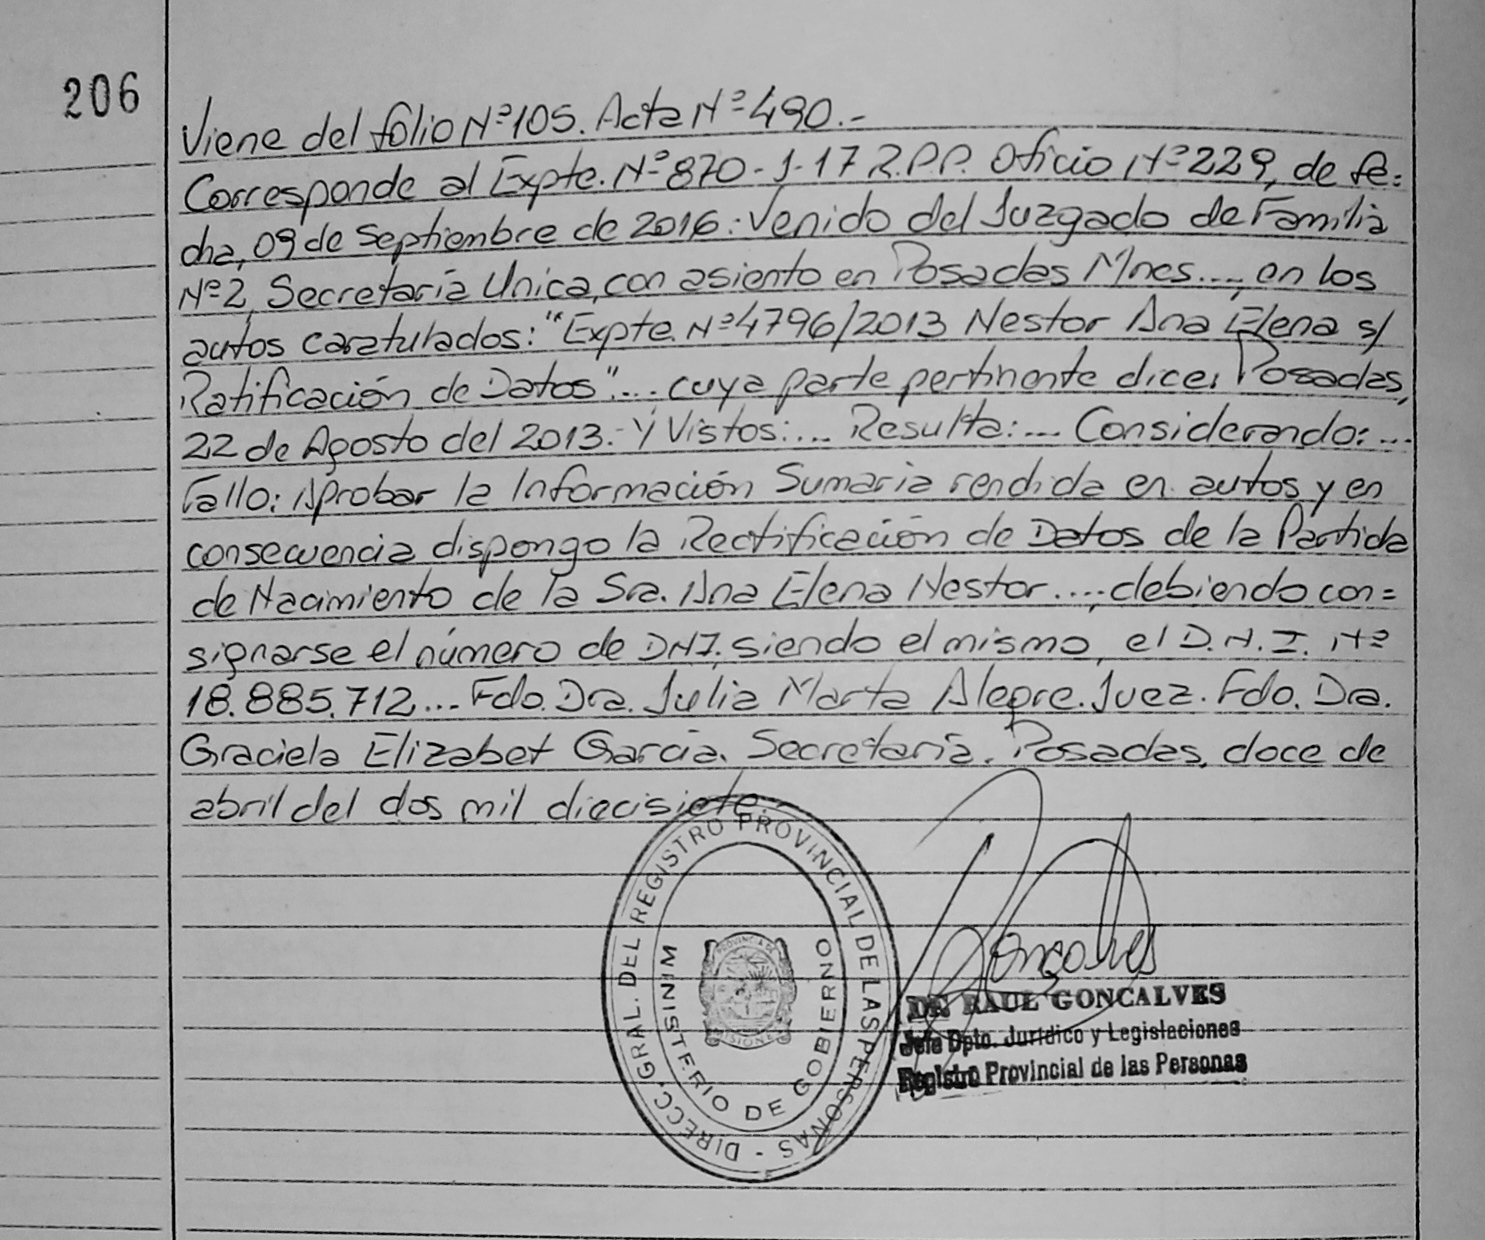 206
Viene del folio Nº 105. Acta Nº 490.-
Corresponde al Expte. Nº 870-J-17 R.P.P. Oficio Nº 229, de fe=
cha, 09 de Septiembre de 2016: Venido del Juzgado de Familia
Nº 2, Secretaría Unica, con asiento en Posadas Mnes...., en los
autos caratulados: "Expte. Nº 4796/2013 Nestor Ana Elena s/
Ratificación de Datos".... cuya parte pertinente dice: Posadas,
22 de Agosto del 2013.- Y Vistos:.... Resulta:.... Considerando:...
Fallo: Aprobar la Información Sumaria rendida en autos y en
consecuencia dispongo la Rectificación de Datos de la Partida
de Nacimiento de la Sra. Ana Elena Nestor...., debiendo con=
signarse el número de DNI. siendo el mismo, el D.N.I. Nº
18.885.712.... Fdo. Dra. Julia Marta Alegre. Juez. Fdo. Dra.
Graciela Elizabet García. Secretaria. Posadas, doce de
abril del dos mil diecisiete.
DIRECC. GRAL. DEL REGISTRO PROVINCIAL DE LAS PERSONAS -
MINISTERIO DE GOBIERNO
PROVINCIA DE
MISIONES
Gonçalves
DR RAUL GONCALVES
Jefe Dpto. Jurídico y Legislaciones
Registro Provincial de las Personas